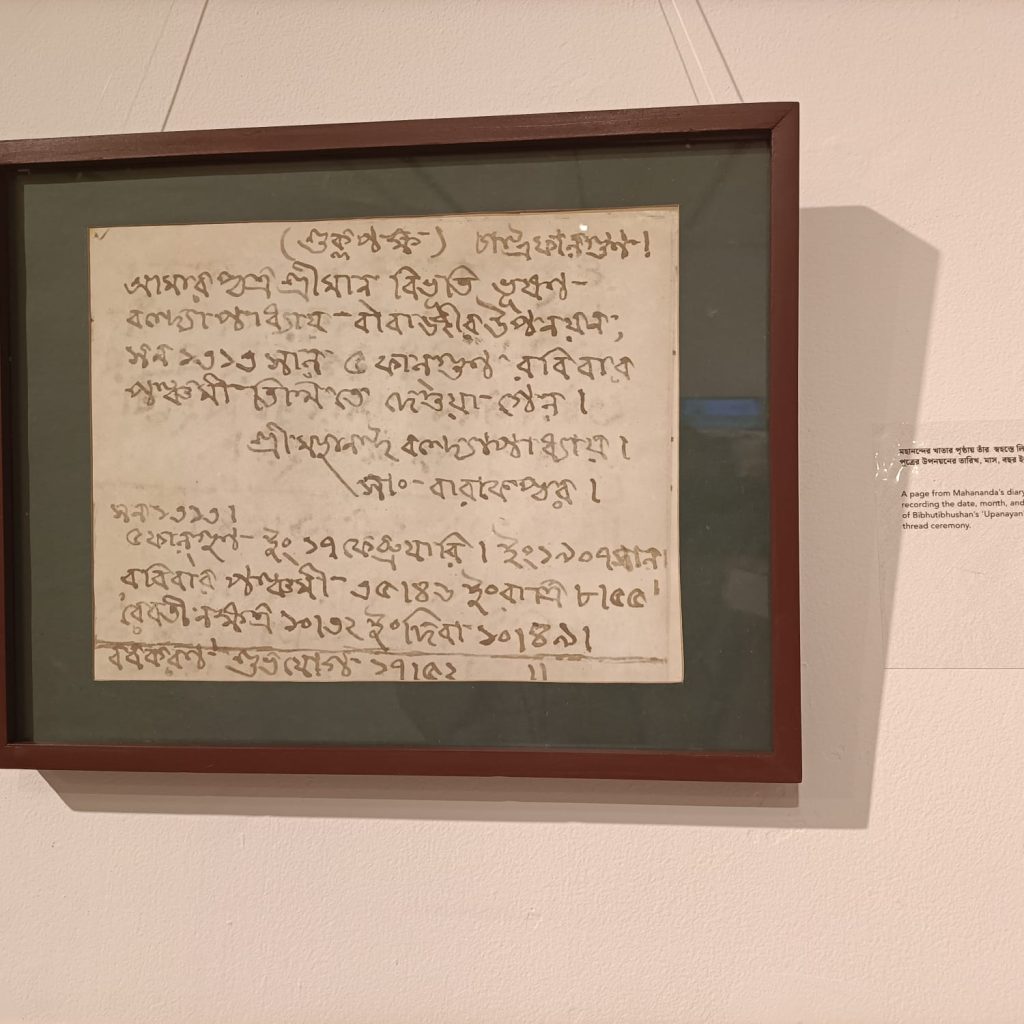 (শুক্লপক্ষ) চান্দ্রফাল্গুণ।
আমার পুত্র শ্রীমান বিভূতি ভূষণ-
বন্দ্যোপাধ্যায় - বাবাজীর উপনয়ন,
সন ১৩১৩ সাল ৫ ফাল্গুণ রবিবার
পঞ্চমী তিথিতে দেওয়া গেল।
শ্রীমহানন্দ বন্দ্যোপাধ্যায়।
সাং- বারাকপুর।
সন ১৩১৩।
৫ ফাল্গুণ- ইং ১৭ ফেব্রুয়ারি। ইং ১৯০৭ সাল।
রবিবার পঞ্চমী- ৩৫।৪৬ ইং রাত্রি ৮।৫৫
রেবতী নক্ষত্র ১০।৩২ ইং দিবা ১০।৪৯।
ববকরণ শুভযোগ ১৭।৫২ ॥
মহানন্দের খাতার পৃষ্ঠায় তাঁর স্বহস্তে
পুত্রের উপনয়নের তারিখ, মাস, বছর
A page from Mahananda's diary
recording the date, month, and
of Bibhutibhushan's 'Upanayan'
thread ceremony.